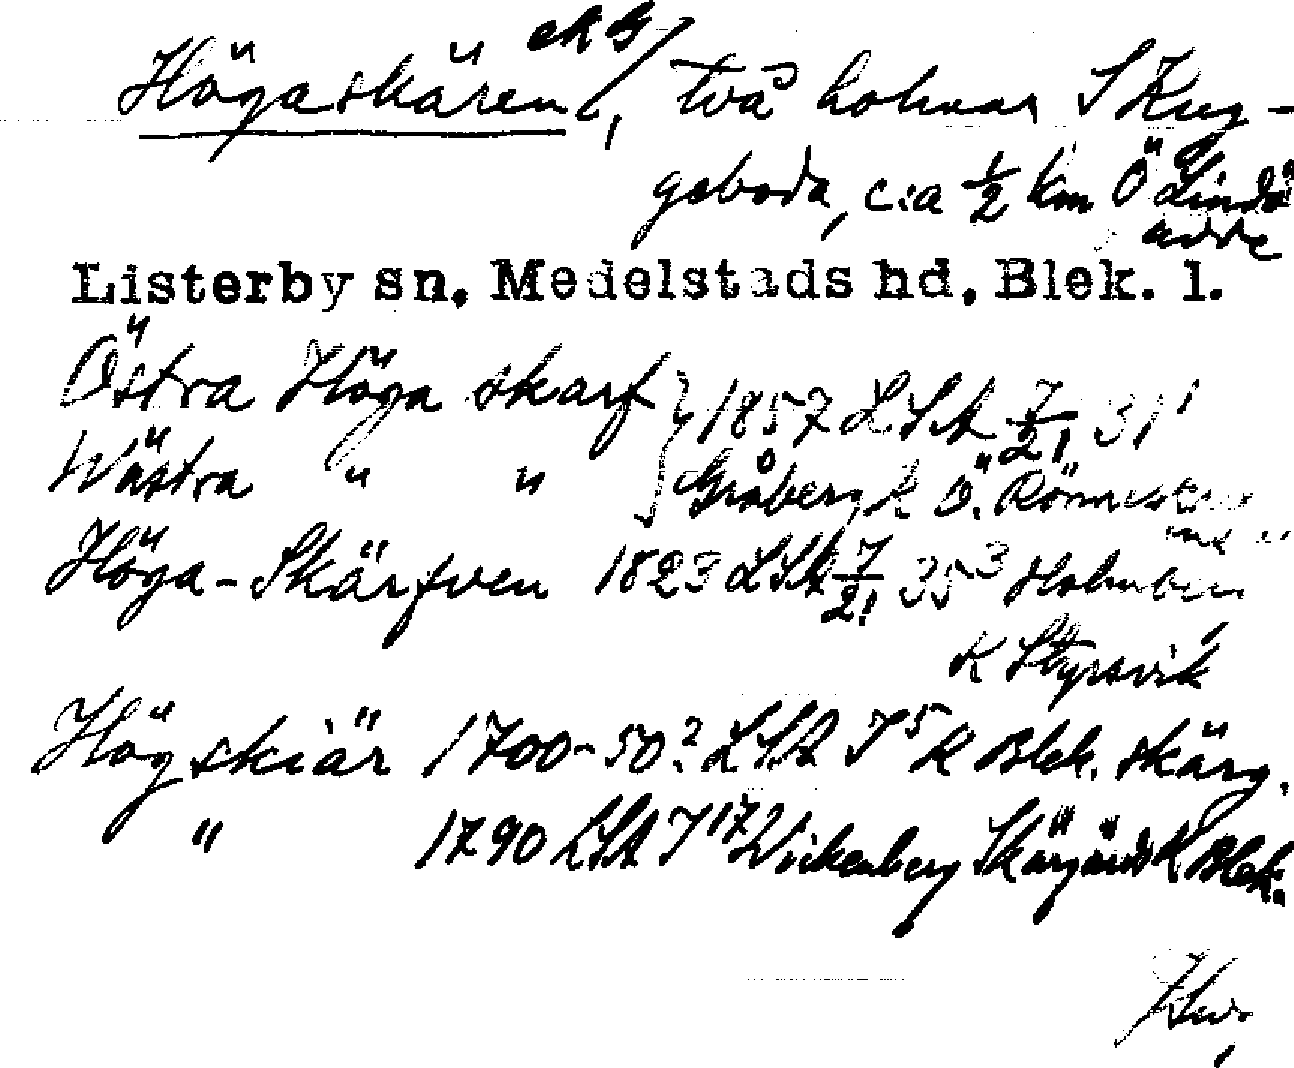 Högaskären ekG/, två holmar S Kug-
geboda, c:a ½ km Ö Lindö
udde
Listerby sn. Medelstads hd. Blek. l.
Östra Höga skarf } 1857 LSA 7/21 31¹
Wästra " " } Gråberg k Ö. Rönneskär
Höga-Skärfven 1823 LSA 7/21 35³ Holmberg
K Styrsvik
Högskiär 1700-50? LSA T⁵ K Blek. skärg.
" 1790 LSA T¹⁷ Wickenberg Skärgårds K Blek.